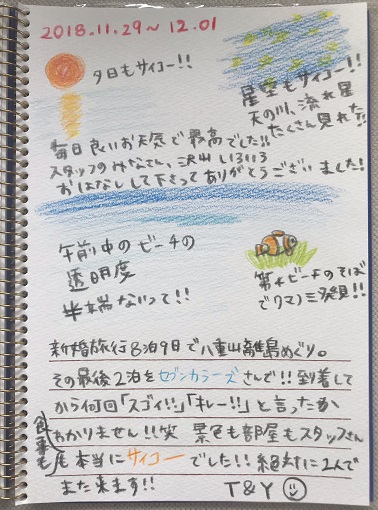 2018.11.29~12.01
夕日もサイコー!!
星空もサイコー!!
天の川、流れ星
たくさん見れた!!
毎日良いお天気で最高でした!!
スタッフのみなさん、沢山いろいろ
おはなしして下さってありがとうございました!
午前中のビーチの
透明度
半端ないって!!
第4ビーチのそば
でクマノミ発見!!
新婚旅行8泊9日で八重山離島めぐり。
その最後2泊をセブンカラーズさんで!!到着して
から何回「スゴイ!!」「キレー!!」と言ったか
わかりません!!笑 景色も部屋もスタッフさん
食事も
も本当にサイコーでした!!絶対に2人で
また来ます!!
T&Y